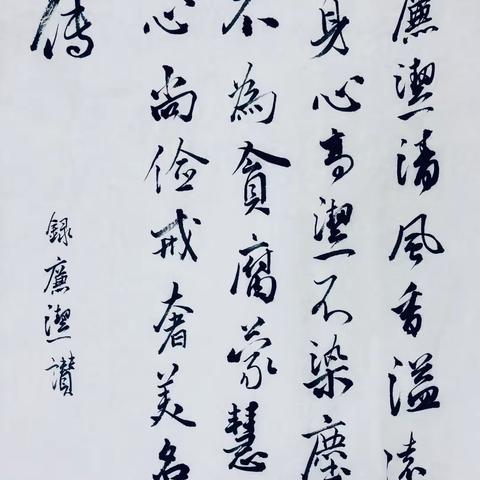 廉潔清風香溢遠
身心高潔不染塵
不為貪腐蒙慧
心尚儉戒奢美名
傳
錄廉潔讚